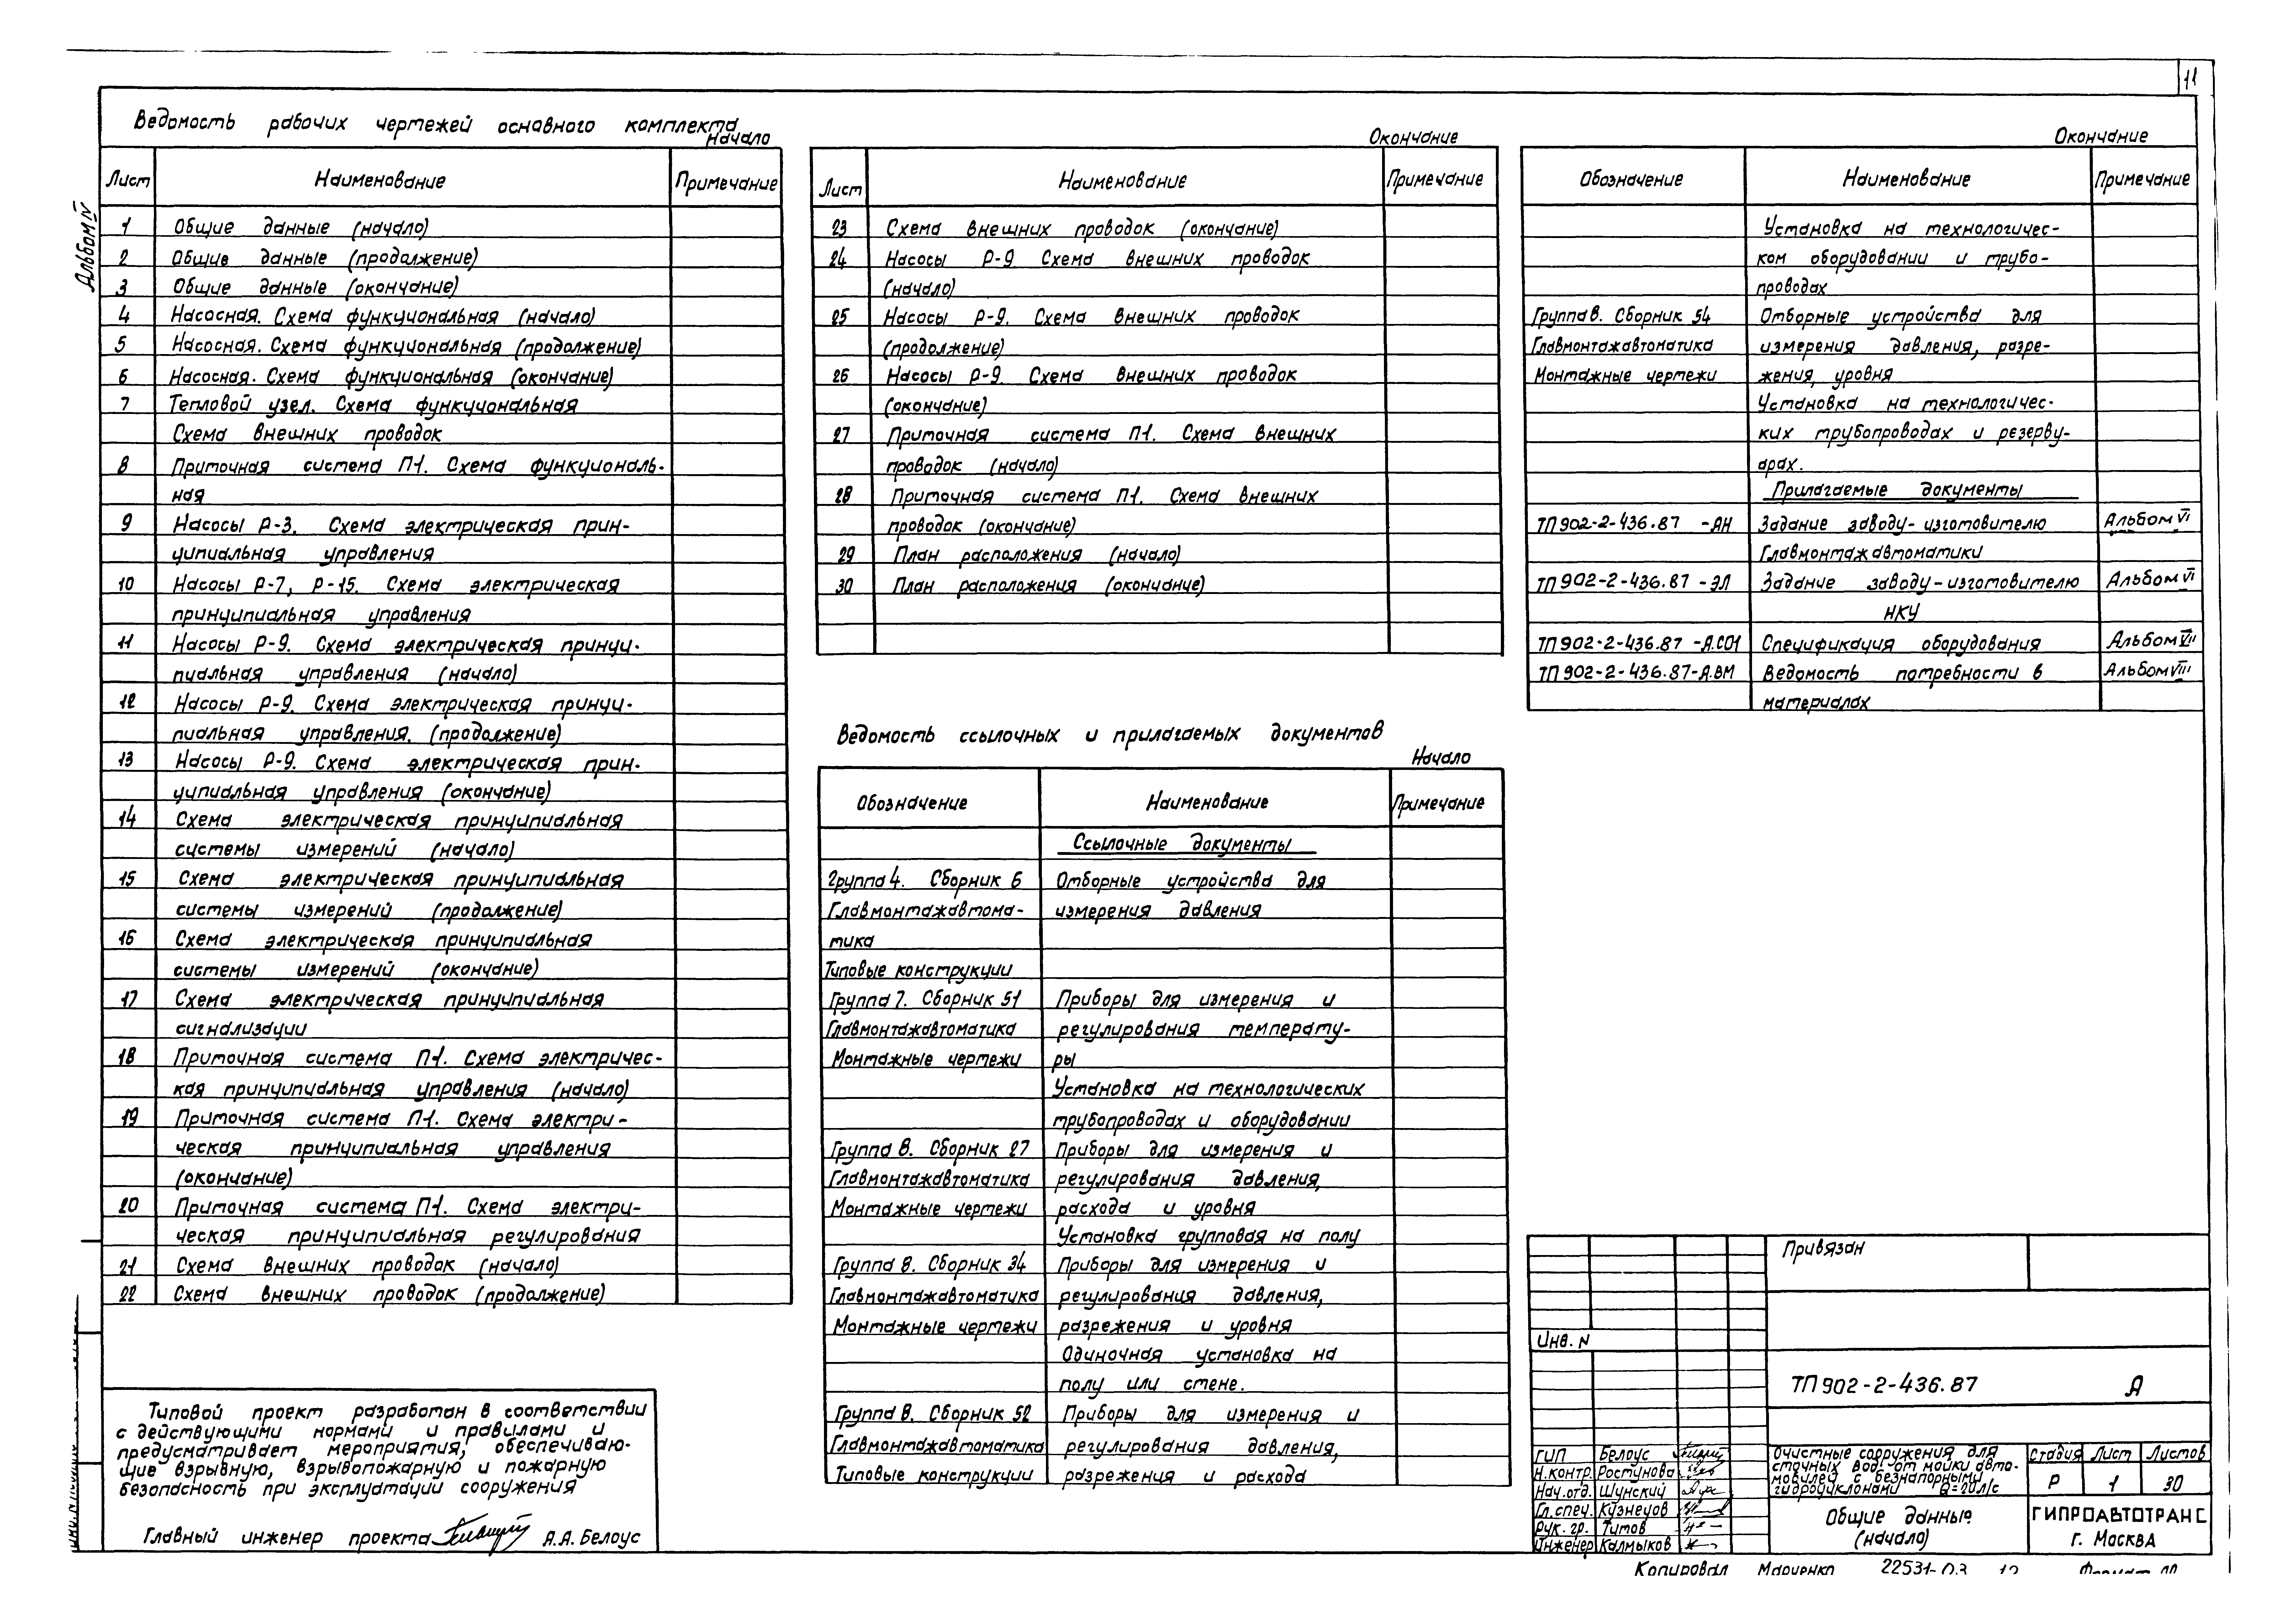 11
Альбом IV
Ведомость рабочих чертежей основного комплекта
Начало
Лист Наименование Примечание
1 Общие данные (начало)
2 Общие данные (продолжение)
3 Общие данные (окончание)
4 Насосная. Схема функциональная (начало)
5 Насосная. Схема функциональная (продолжение)
6 Насосная. Схема функциональная (окончание)
7 Тепловой узел. Схема функциональная
Схема внешних проводок
8 Приточная система П-1. Схема функциональ-
ная
9 Насосы Р-3. Схема электрическая прин-
ципиальная управления
10 Насосы Р-7, Р-15. Схема электрическая
принципиальная управления
11 Насосы Р-9. Схема электрическая принци-
пиальная управления (начало)
12 Насосы Р-9. Схема электрическая принци-
пиальная управления. (продолжение)
13 Насосы Р-9. Схема электрическая прин-
ципиальная управления (окончание)
14 Схема электрическая принципиальная
системы измерений (начало)
15 Схема электрическая принципиальная
системы измерений (продолжение)
16 Схема электрическая принципиальная
системы измерений (окончание)
17 Схема электрическая принципиальная
сигнализации
18 Приточная система П-1. Схема электричес-
кая принципиальная управления (начало)
19 Приточная система П-1. Схема электри-
ческая принципиальная управления
(окончание)
20 Приточная система П-1. Схема электри-
ческая принципиальная регулирования
21 Схема внешних проводок (начало)
22 Схема внешних проводок (продолжение)
Типовой проект разработан в соответствии
с действующими нормами и правилами и
предусматривает мероприятия, обеспечиваю-
щие взрывную, взрывопожарную и пожарную
безопасность при эксплуатации сооружения
Главный инженер проекта А.А. Белоус
Окончание
Лист Наименование Примечание
23 Схема внешних проводок (окончание)
24 Насосы Р-9. Схема внешних проводок
(начало)
25 Насосы Р-9. Схема внешних проводок
(продолжение)
26 Насосы Р-9. Схема внешних проводок
(окончание)
27 Приточная система П-1. Схема внешних
проводок (начало)
28 Приточная система П-1. Схема внешних
проводок (окончание)
29 План расположения (начало)
30 План расположения (окончание)
Ведомость ссылочных и прилагаемых документов
Начало
Обозначение Наименование Примечание
Ссылочные документы
Группа 4. Сборник 6 Отборные устройства для
Главмонтажавтома- измерения давления
тика
Типовые конструкции
Группа 7. Сборник 51 Приборы для измерения и
Главмонтажавтоматика регулирования температу-
Монтажные чертежи ры
Установка на технологических
трубопроводах и оборудовании
Группа 8. Сборник 27 Приборы для измерения и
Главмонтажавтоматика регулирования давления,
Монтажные чертежи расхода и уровня
Установка групповая на полу
Группа 8. Сборник 34 Приборы для измерения и
Главмонтажавтоматика регулирования давления,
Монтажные чертежи разрежения и уровня
Одиночная установка на
полу или стене.
Группа 8. Сборник 52 Приборы для измерения и
Главмонтажавтоматика регулирования давления,
Типовые конструкции разрежения и расхода
Окончание
Обозначение Наименование Примечание
Установка на технологичес-
ком оборудовании и трубо-
проводах
Группа 8. Сборник 54 Отборные устройства для
Главмонтажавтоматика измерения давления, разре-
Монтажные чертежи жения, уровня
Установка на технологичес-
ких трубопроводах и резерву-
арах.
Прилагаемые документы
ТП 902-2-436.87 -АН Задание заводу-изготовителю Альбом VI
Главмонтажавтоматики
ТП 902-2-436.87 -ЭЛ Задание заводу-изготовителю Альбом VI
НКУ
ТП 902-2-436.87 -А.СО1 Спецификация оборудования Альбом VII
ТП 902-2-436.87-А.ВМ Ведомость потребности в Альбом VIII
материалах
Привязан
Инв. N
ТП 902-2-436.87 А
ГИП Белоус
Н.контр. Ростунова
Нач.отд. Шунский
Гл.спец. Кузнецов
Рук. гр. Титов
Инженер Калмыков
Очистные сооружения для
сточных вод от мойки авто-
мобилей с безнапорными
гидроциклонами Q=20л/с
Стадия Лист Листов
Р 1 30
Общие данные
(начало)
ГИПРОАВТОТРАНС
г. Москва
Копировал Мариенко 22531-03 12 Формат